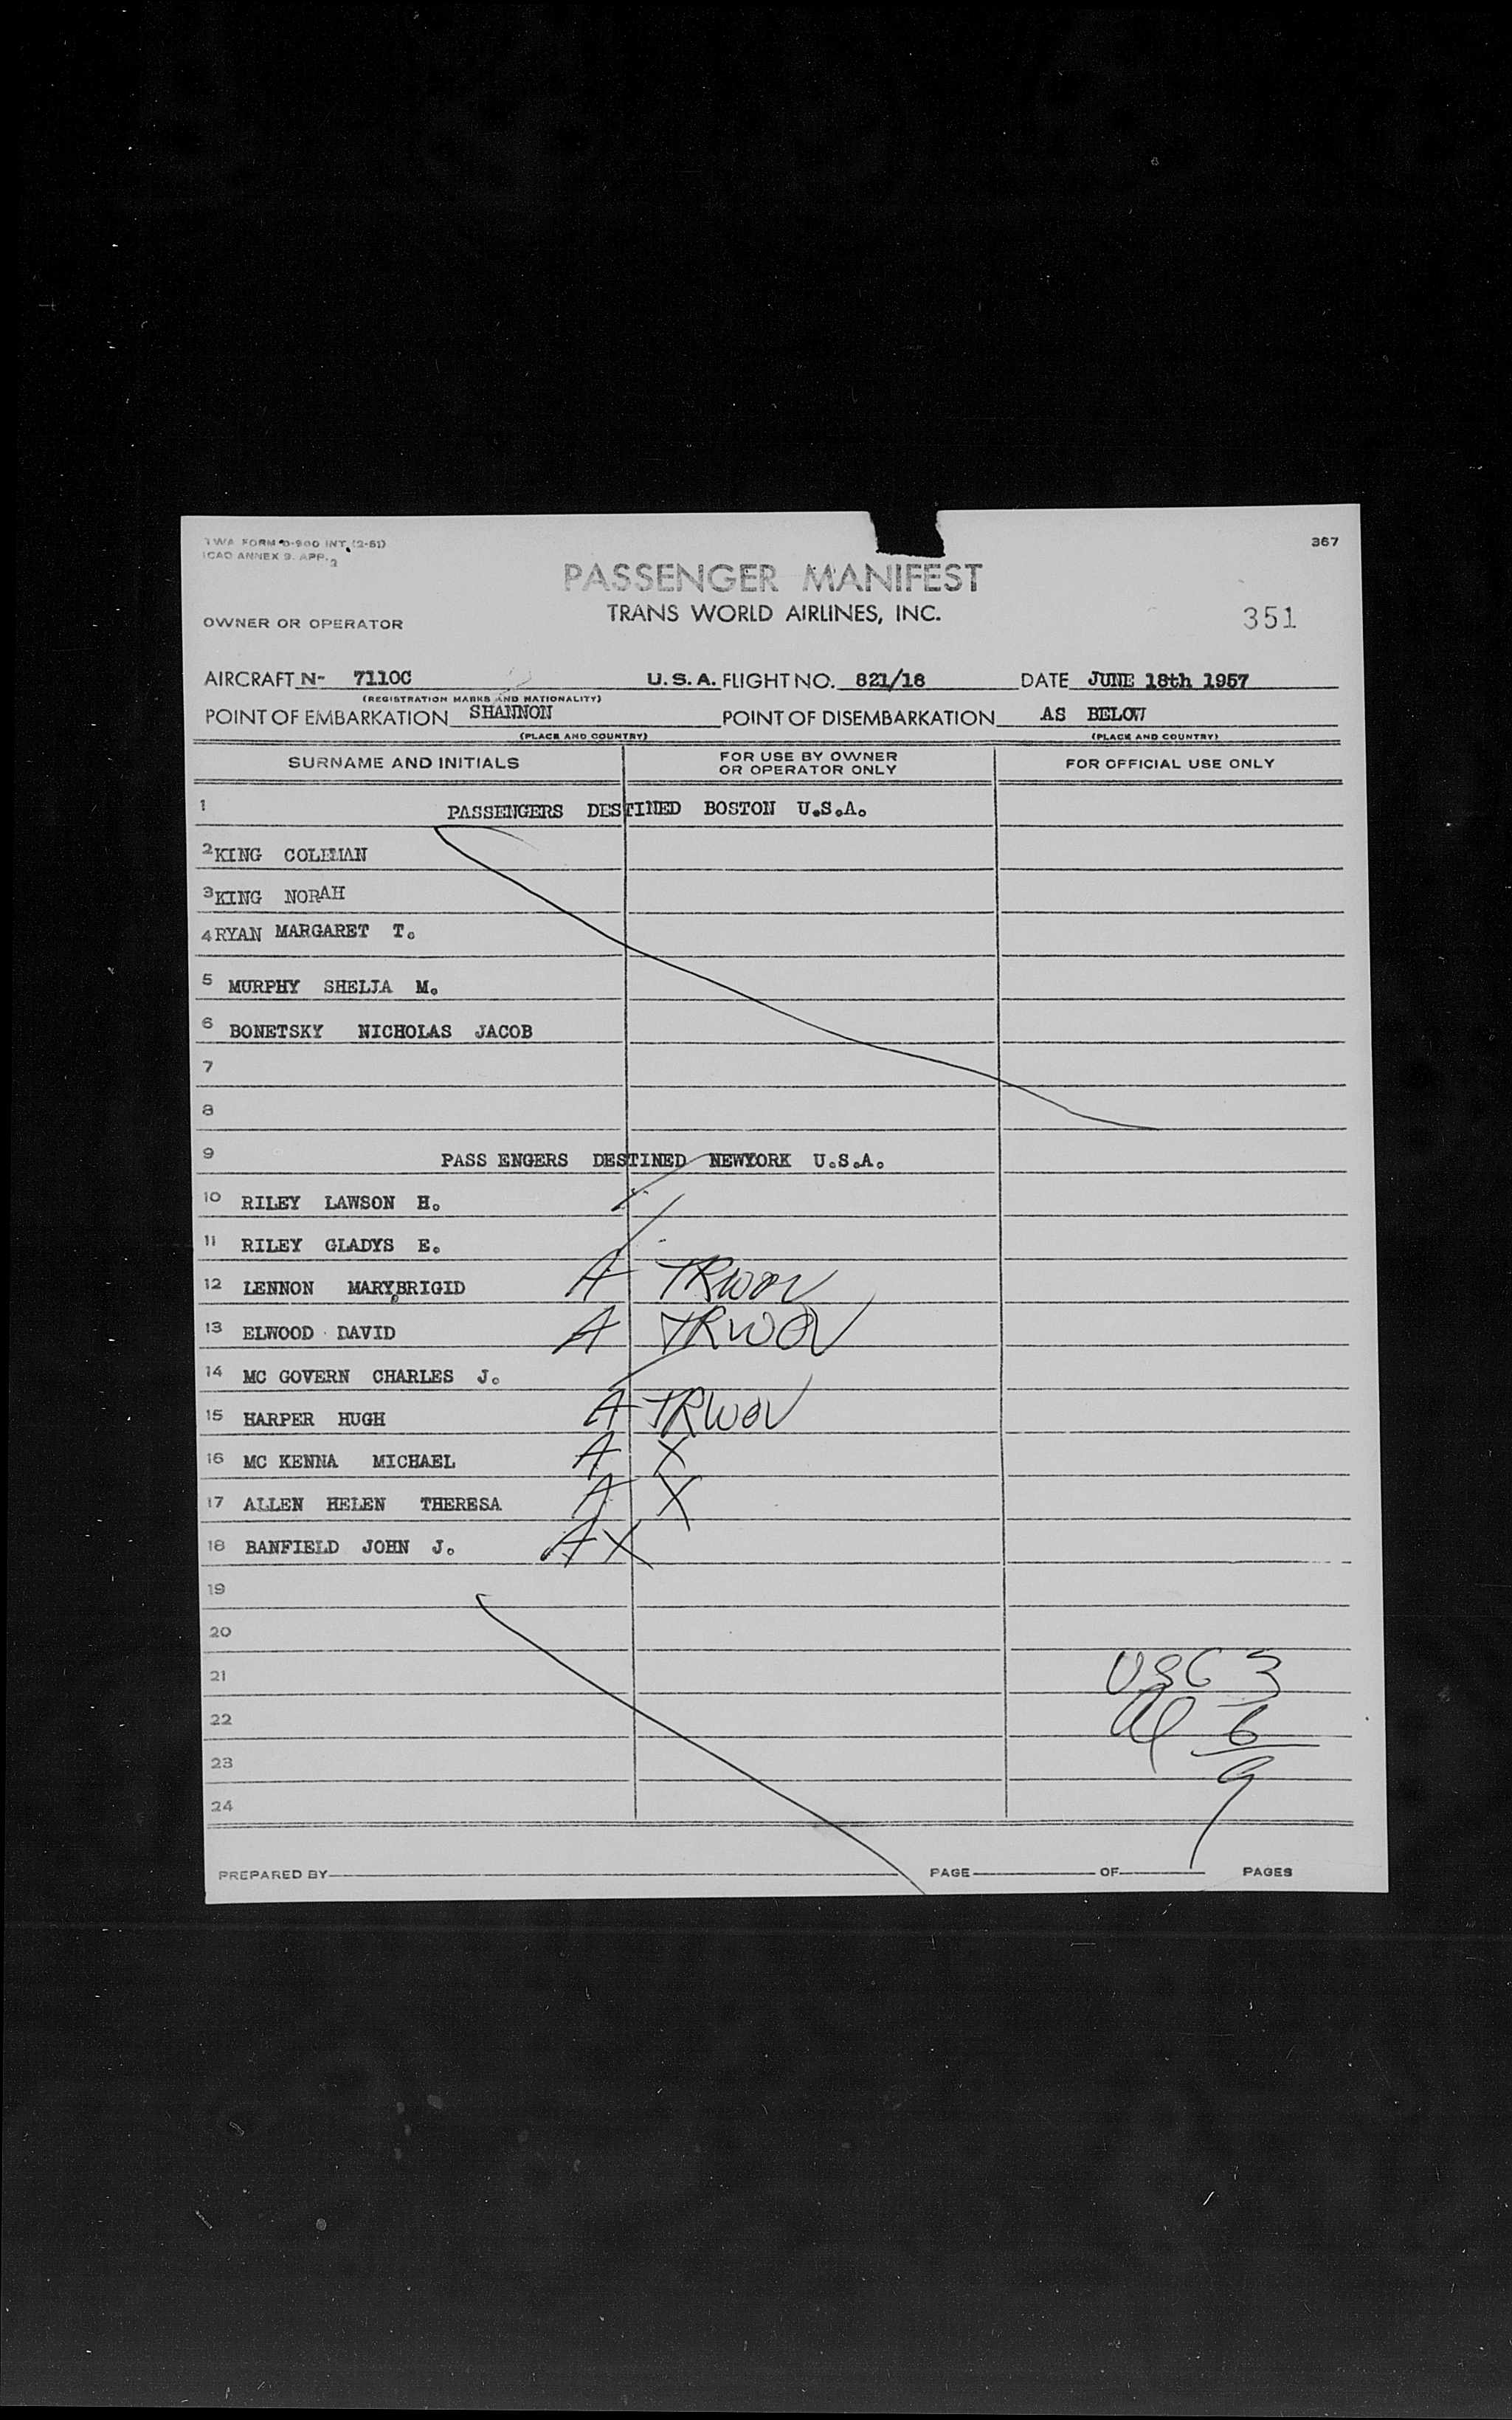 TWA FORM O-900 INT. (2-51)
367
ICAO ANNEX 9. APP. 2
PASSENGER MANIFEST
TRANS WORLD AIRLINES, INC.
351
OWNER OR OPERATOR
AIRCRAFT N- 7110C U.S.A. FLIGHT NO. 821/18 DATE JUNE 18th 1957
(REGISTRATION MARKS AND NATIONALITY)
POINT OF EMBARKATION SHANNON POINT OF DISEMBARKATION AS BELOW
(PLACE AND COUNTRY) (PLACE AND COUNTRY)
SURNAME AND INITIALS FOR USE BY OWNER OR OPERATOR ONLY FOR OFFICIAL USE ONLY
1 PASSENGERS DESTINED BOSTON U.S.A.
2 KING COLEMAN
3 KING NORAH
4 RYAN MARGARET T.
5 MURPHY SHELIA M.
6 BONETSKY NICHOLAS JACOB
7
8
9 PASS ENGERS DESTINED NEWYORK U.S.A.
10 RILEY LAWSON H.
11 RILEY GLADYS E.
12 LENNON MARY,BRIGID A TRWOV
13 ELWOOD DAVID A TRWOV
14 MC GOVERN CHARLES J.
15 HARPER HUGH A TRWOV
16 MC KENNA MICHAEL A X
17 ALLEN HELEN THERESA A X
18 BANFIELD JOHN J. A X
19
20
21 USC 3
22 6
23 9
24
PREPARED BY PAGE OF PAGES